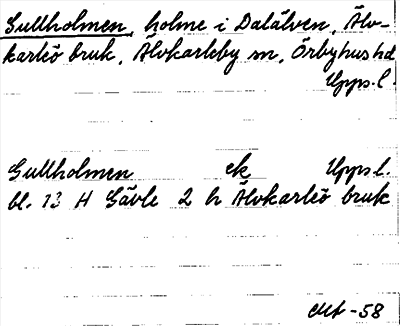 Gullholmen, holme i Dalälven, Älv-
karleö bruk, Älvkarleby sn, Örbyhus hd
Upps. l.
Gullholmen ek Upps. l.
bl. 13 H Gävle 2 h Älvkarleö bruk
-58